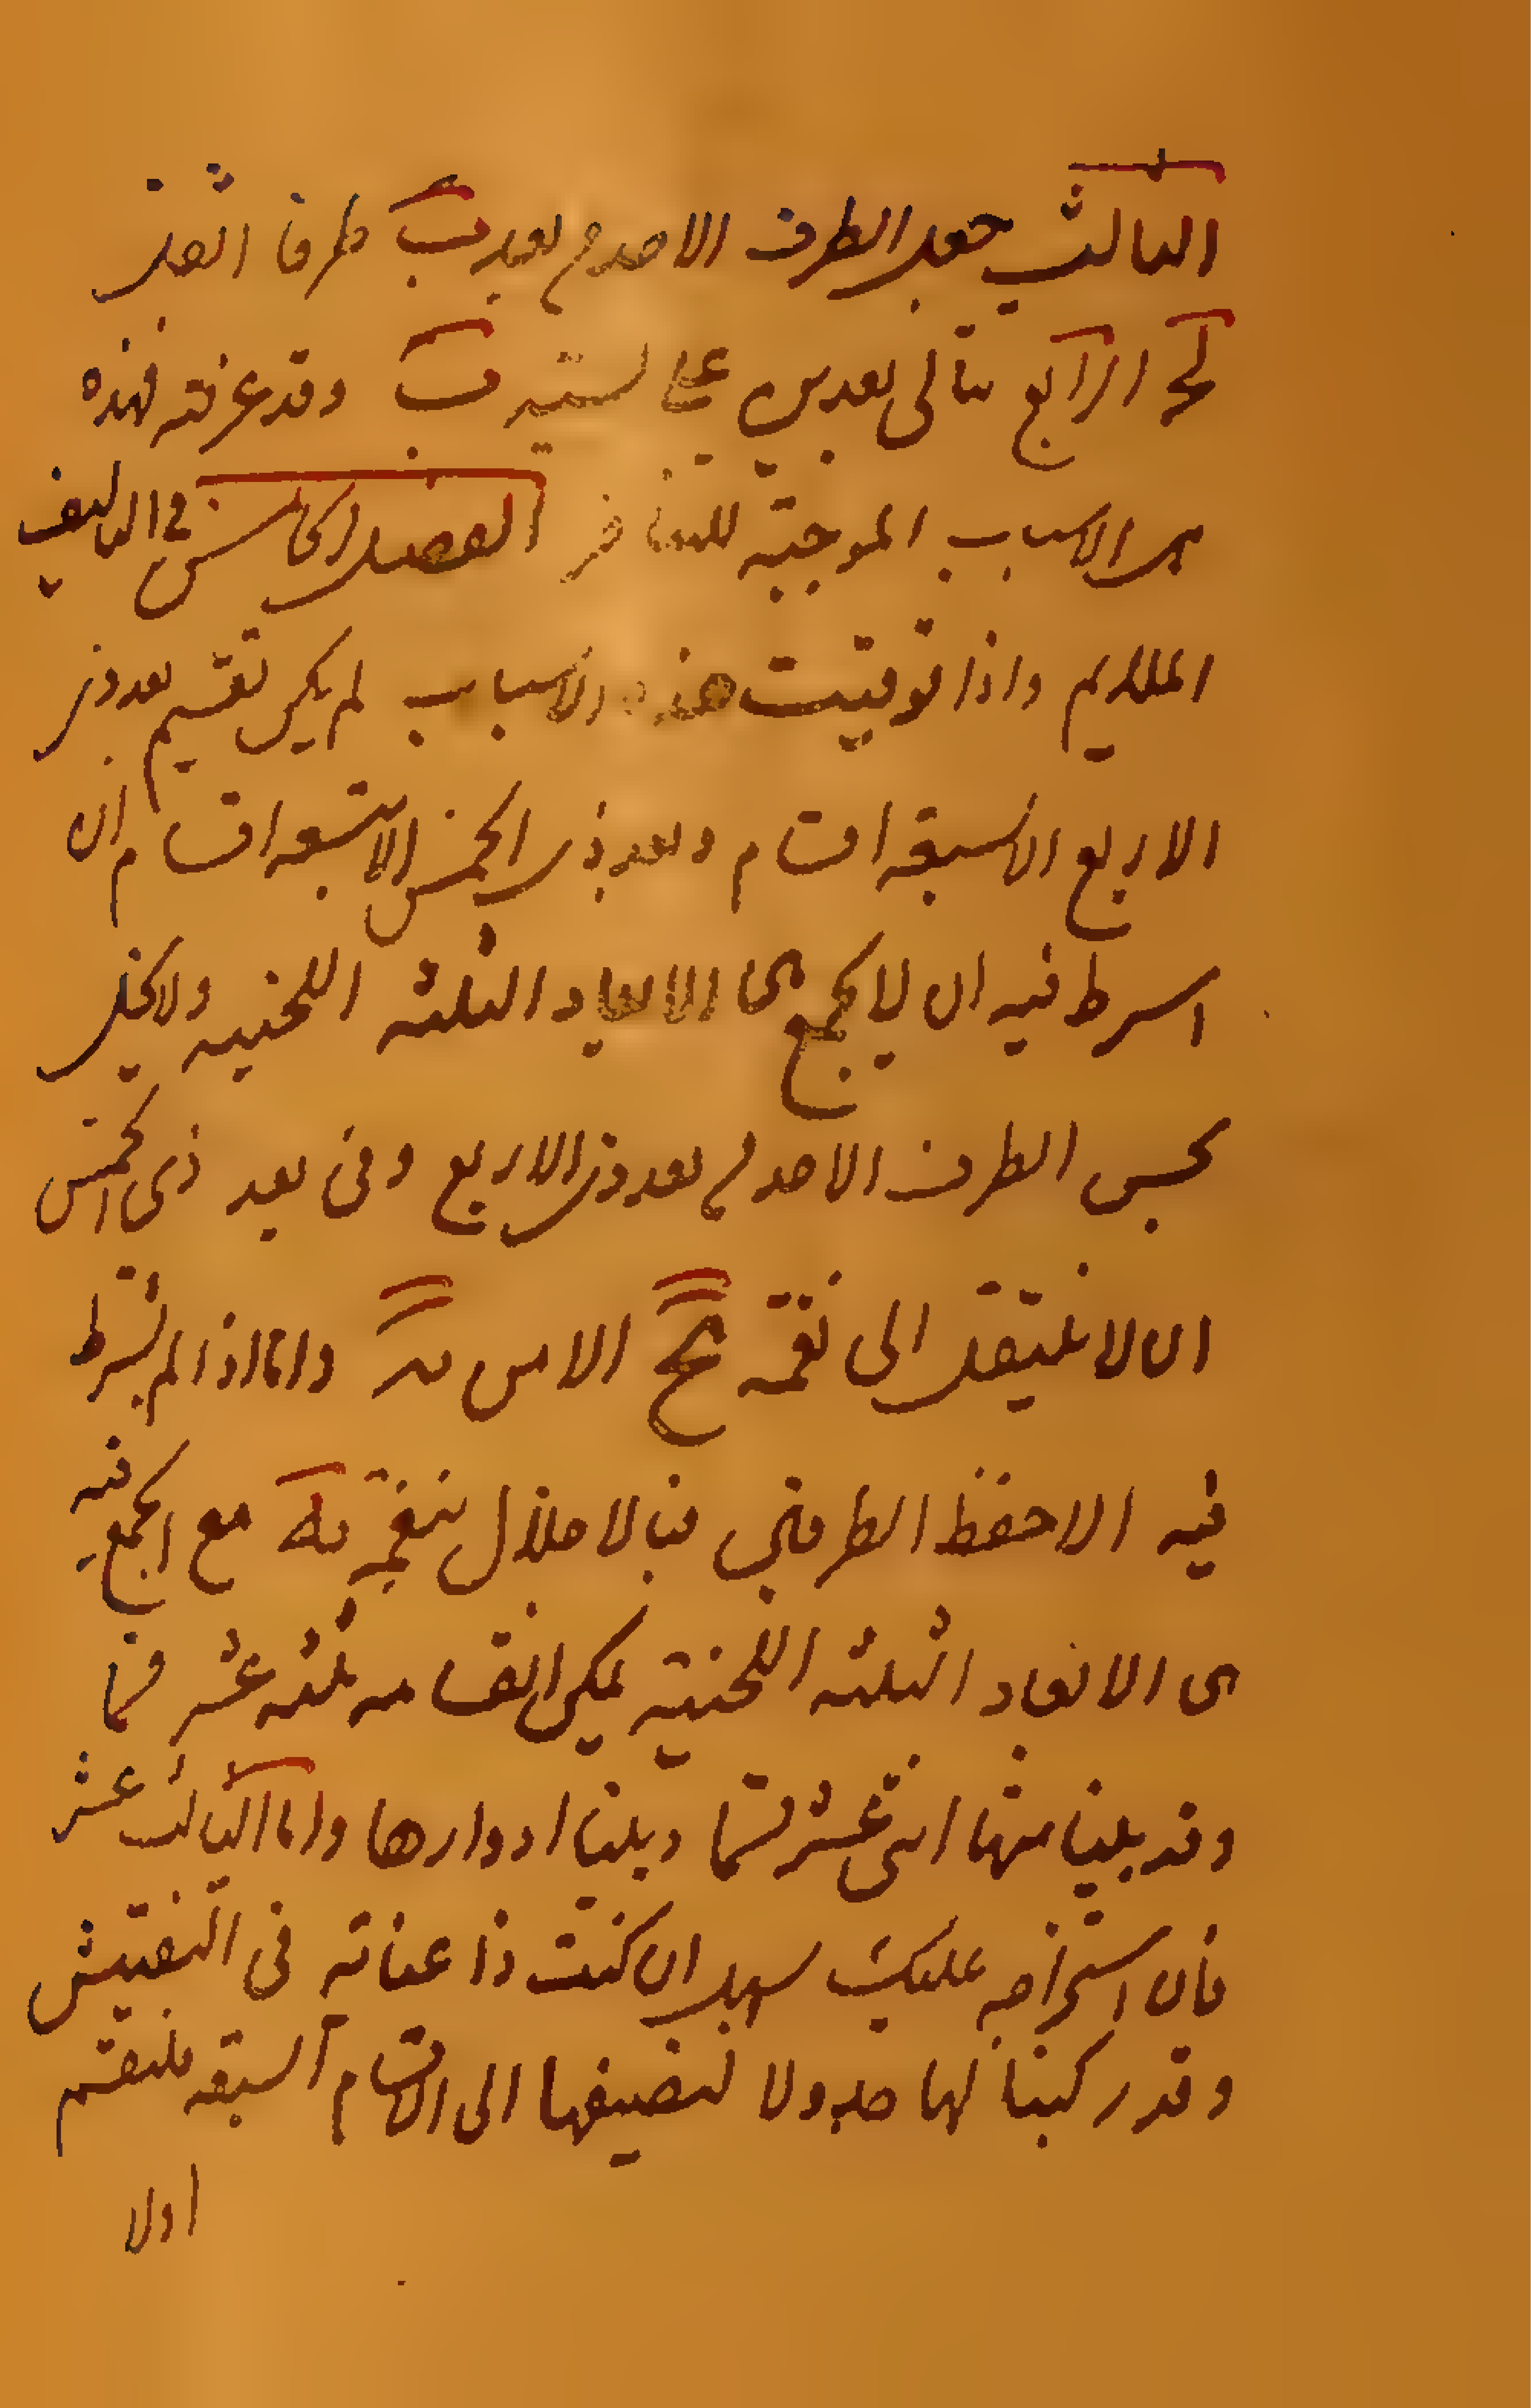 الثالث جعل الطرف الاحد من بعد ب طرفا اثقل
لح الرابع تتالى بعدين على نسبة ب وقد عرفته فهذه
هى الاسباب الموجبة للتنافر الفصل الخامس فى التاليف
الملايم واذا توقيت هذه الاسباب لم يكن تقسيم بعد ذى
الاربع الا سبعة اقسام وبعد ذى الخمس الا تسعة اقسام ان
اشرط فيه ان لا يجمع بين الابعاد الثلثة اللحنيه ولا يخل
بجنس الطرف الاحد من بعد ذى الاربع وفى بعد ذى الخمس
ان لا ينتقل الى نغمة يح الا من يد واما اذا لم نشرط
فيه الا حفظ الطرفين فبالاخلال بنغمة يه مع الجمع فيه
بين الابعاد الثلثه اللحنية يمكن انقسامه ثلثه عشر قسما
وقد بينا منها اثنى عشر قسما وبينا ادوارها واما الثالث عشر
فان استخراجه عليك سهل ان كنت ذا عناية فى التفتيش
وقد ركبنا لها جدولا لنضيفها الى الاقسام السبعة فلنقسم
اولا